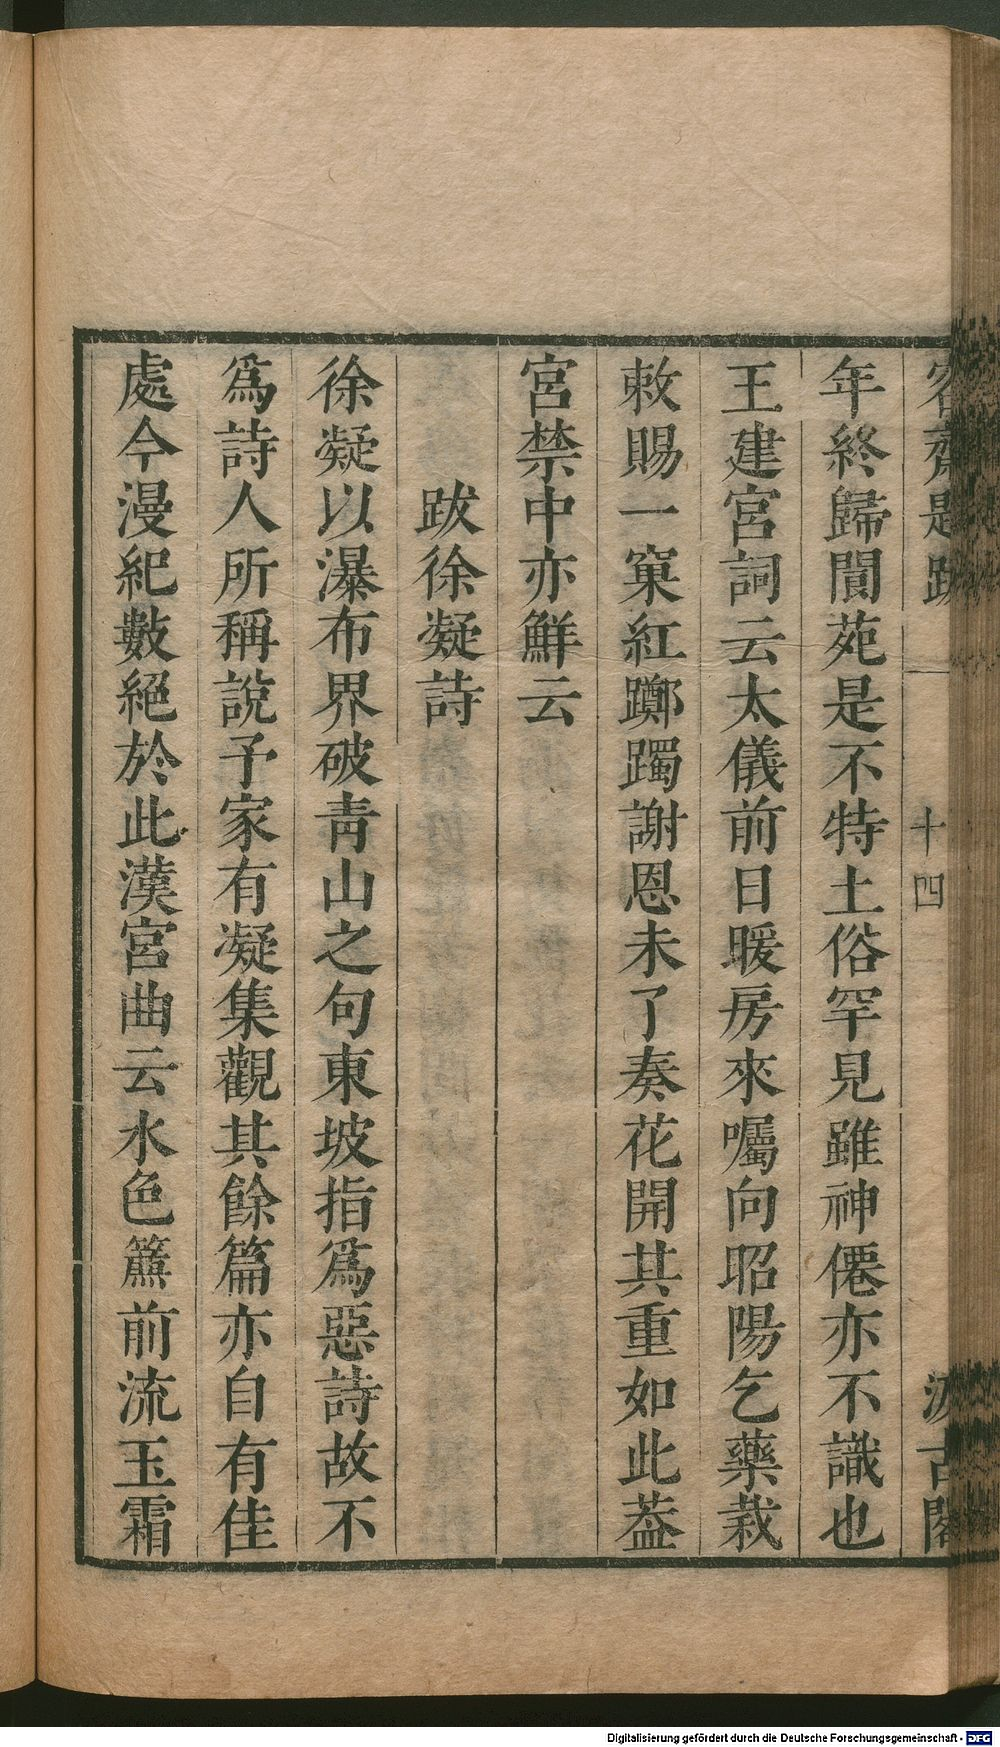 容齋題跋 一 十四 汲古閣
年終歸閬苑是不特土俗罕見雖神僊亦不識也
王建宮詞云太儀前日暖房來囑向昭陽乞藥栽
敕賜一窠紅躑躅謝恩未了奏花開其重如此葢
宮禁中亦鮮云
跋徐凝詩
徐凝以瀑布界破靑山之句東坡指爲惡詩故不
爲詩人所稱說予家有凝集觀其餘篇亦自有佳
處今漫紀數絕於此漢宮曲云水色簾前流玉霜
Digitalisierung gefördert durch die Deutsche Forschungsgemeinschaft - DFG